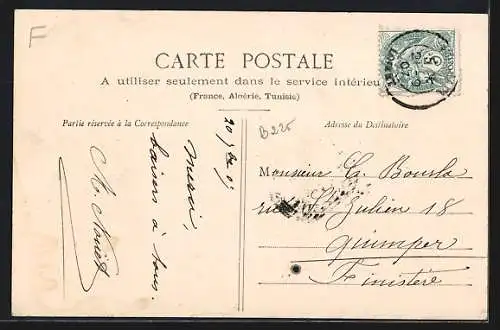 F
CARTE POSTALE
A utiliser seulement dans le service intérieur
(France, Algérie, Tunisie)
Partie réservée à la Correspondance
Adresse du Destinataire
B225
20
merci,
baisers à tous.
Monsieur Boursla
rue St Julien 18
Quimper
Finistère